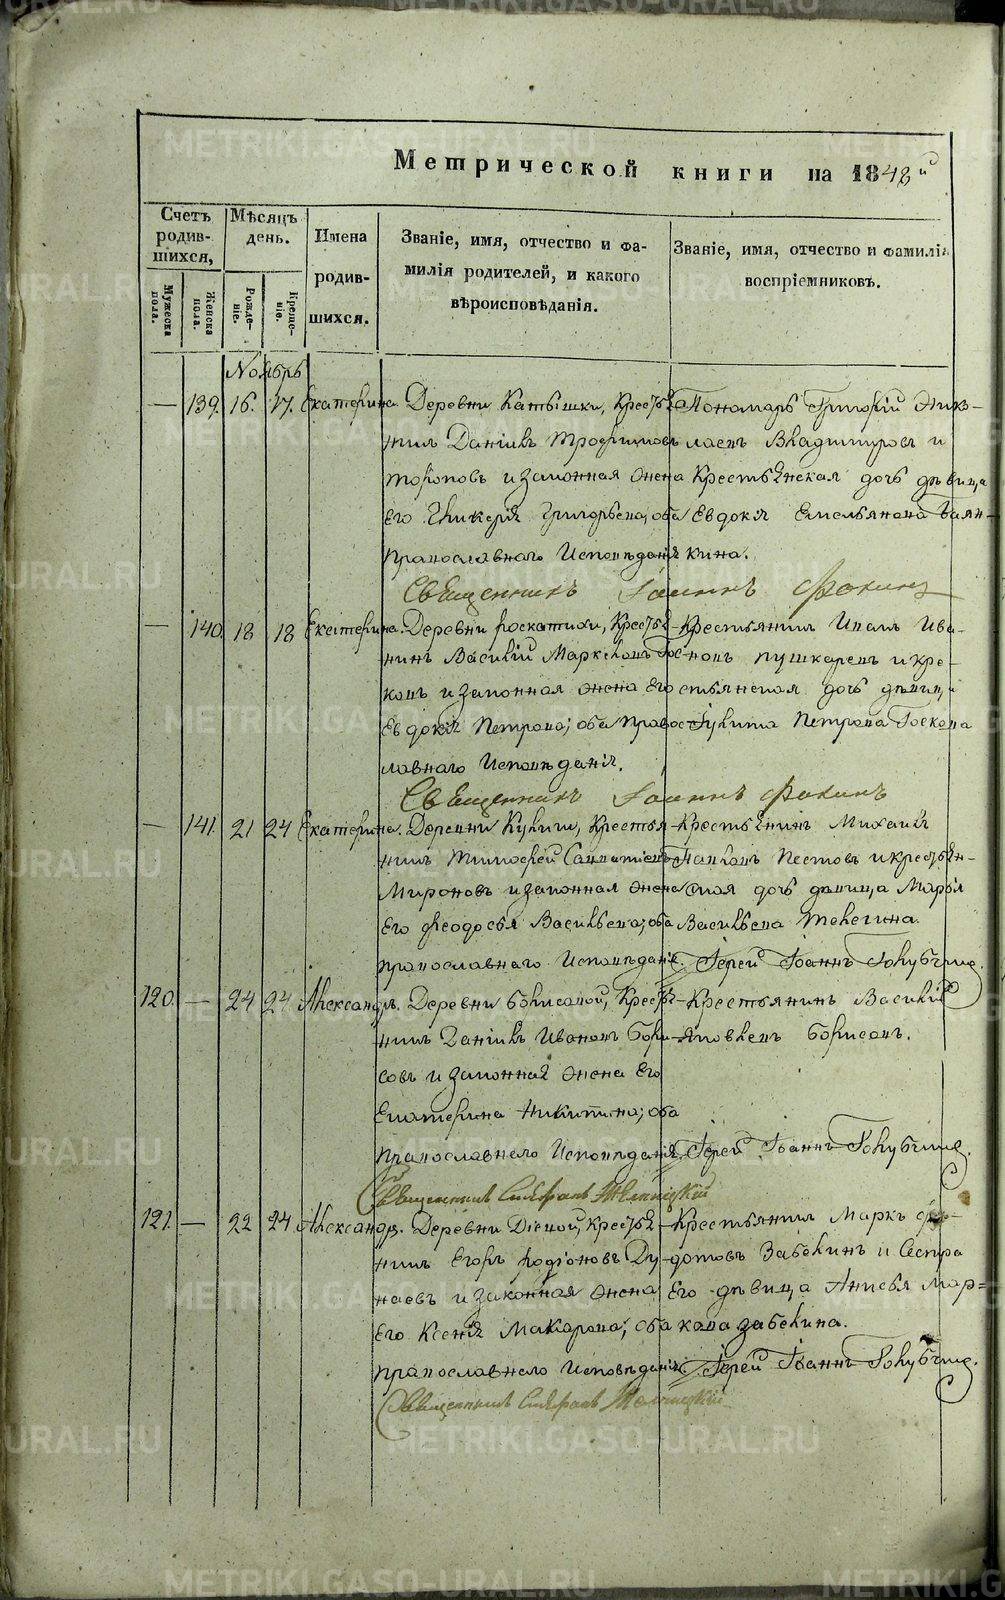 METRIKI.GASO-URAL.RU
Метрической книги на 1848й
Счетъ родив-шихся,
Мужеска пола.
Женска пола.
Мѣсяцъ день.
Рожде-ніе.
Креще-ніе.
Имена родив-шихся.
Званіе, имя, отчество и фа-
милія родителей, и какого
вѣроисповѣданія.
Званіе, имя, отчество и фамилія
воспріемниковъ.
Ноябрь
— 139. 16. 17. Екатерина. Деревни Катышки, Крестья-
нинъ Даніилъ Трофимовъ
Тороповъ и законная жена
Его Гликерія Григорьева; оба
Православнаго Исповѣданія
Пономарь Григорій Нико-
лаевъ Владимировъ и
Крестьянская дочь дѣвица
Евдокія Емельянова
кина.
Священникъ Іоаннъ Фокинъ
— 140. 18 18 Екатерина. Деревни Роскатихи, Крестья-
нинъ Василій Маркеловъ Гос-
ковъ и законная жена Его
Евдокія Петрова; оба Право-
славнаго Исповѣданія.
Крестьянинъ Ива-
новъ Пушкаревъ и кре-
стьянская дочь дѣвица
Петрова Госкова
Священникъ Іоаннъ Фокинъ
— 141. 21 24 Екатерина. Деревни Кулиги, Крестья-
нинъ Тимофей Савватіевъ
Мироновъ и законная жена
Его Феодосья Васильева; оба
православнаго Исповѣданія.
Крестьянинъ Михаилъ
Павловъ Пестовъ и крестьян-
ская дочь дѣвица Марья
Васильева Телегина.
Іерей Іоаннъ Голубчик.
120. — 24 24 Александръ. Деревни Борисовой, Крестья-
нинъ Даніилъ Ивановъ Бори-
совъ и законная жена Его
Екатерина Никитина; оба
православнаго Исповѣданія.
Крестьянинъ Василій
Яковлевъ Борисовъ.
Іерей Іоаннъ Голубчик.
Священникъ Стефанъ
121. — 22 24 Александръ. Деревни Крестья-
нинъ Егоръ Родіоновъ Ду-
наевъ и законная жена
Его Ксенія Макарова; оба
православнаго Исповѣданія.
Крестьянинъ Маркъ Фе-
дотовъ Забелинъ и Сестра
Его дѣвица Анисья Мар-
кова Забелина.
Іерей Іоаннъ Голубчик.
Священникъ Стефанъ